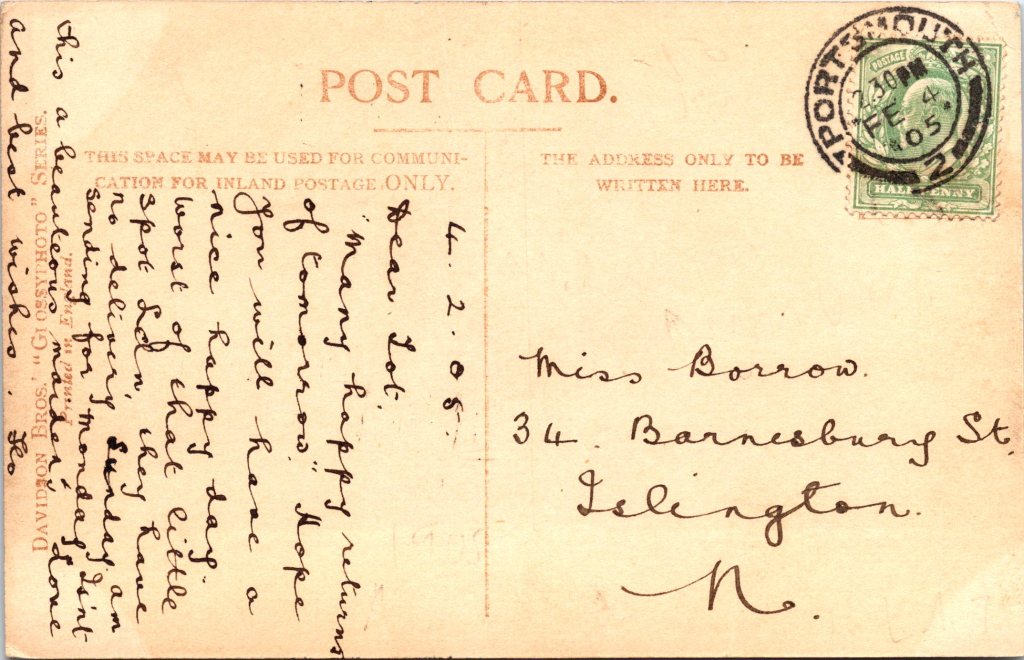 POST CARD.
THIS SPACE MAY BE USED FOR COMMUNI-
CATION FOR INLAND POSTAGE ONLY.
THE ADDRESS ONLY TO BE
WRITTEN HERE.
PORTSMOUTH
30PM
FE 4
05
2
POSTAGE
HALFPENNY
4.2.05.
Dear Lot.
"Many happy returns
of tomorrow" Hope
you will have a
nice happy day.
Worst of that little
spot Ldn, they have
no delivery Sunday am
sending for Monday. Isn't
this a beauteous maiden's, Love
and best wishes.
Miss Borrow.
34. Barnesbury St.
Islington.
N.
DAVIDSON BROS.' "GLOSSYPHOTO" SERIES.
Printed in England.